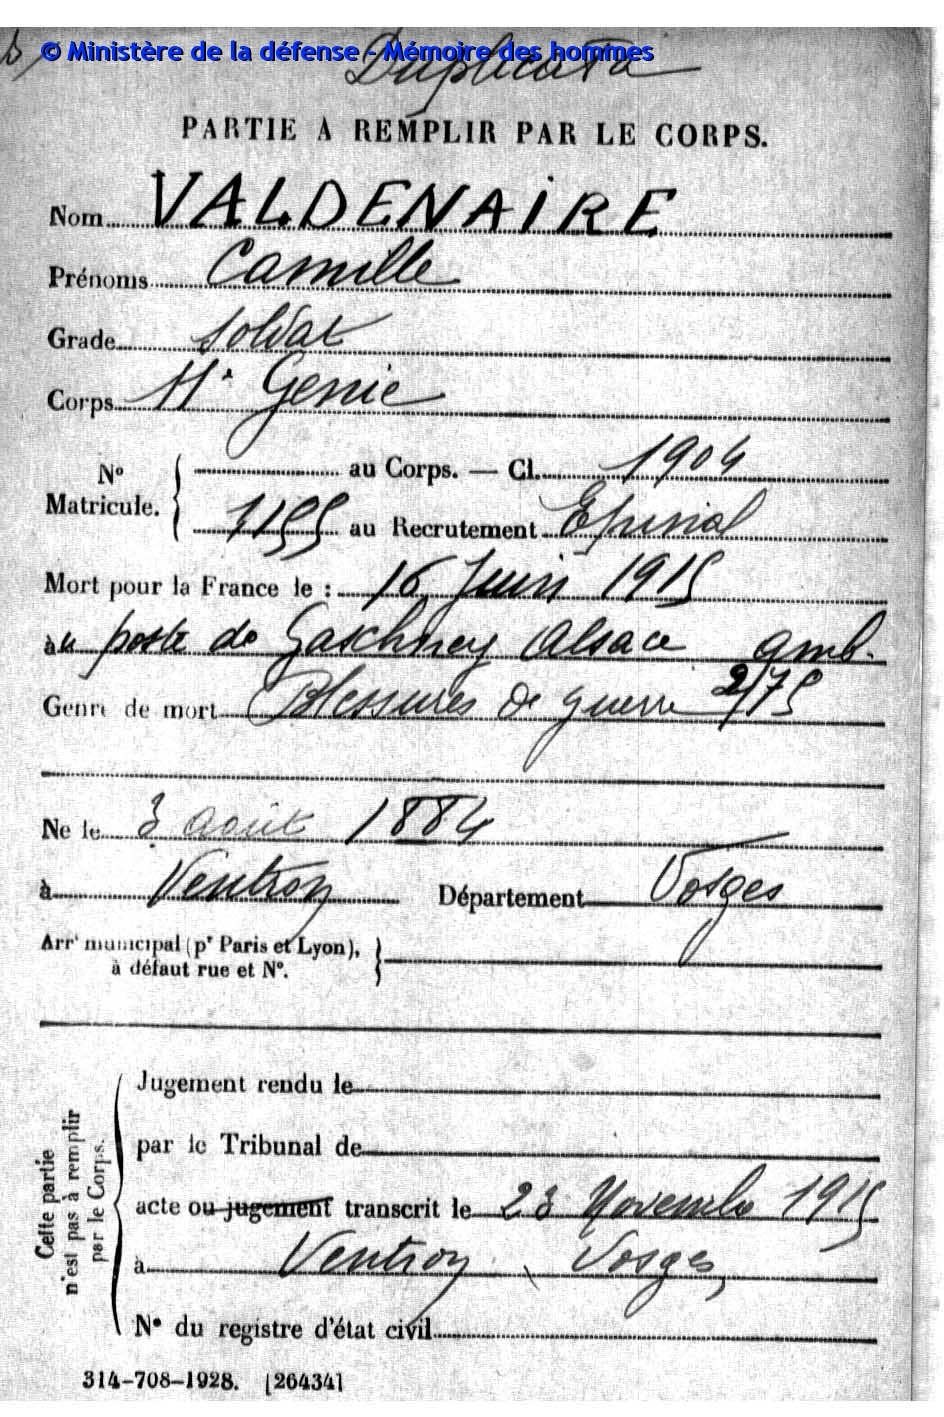 © Ministère de la défense - Mémoire des hommes
Duplicata
PARTIE A REMPLIR PAR LE CORPS.
Nom VALDENAIRE
Prénoms Camille
Grade soldat
Corps 11e Génie
N° Matricule. au Corps. — Cl. 1904
1155 au Recrutement Epinal
Mort pour la France le : 16 Juin 1915
àu poste de Gaschney Alsace amb.
Genre de mort Blessures de guerre 2/75
Né le 3 août 1884
à Ventron Département Vosges
Arrt municipal (pr Paris et Lyon),
à défaut rue et N°.
Cette partie
n'est pas à remplir
par le Corps.
Jugement rendu le
par le Tribunal de
acte ou jugement transcrit le 23 Novembre 1915
à Ventron Vosges
N° du registre d'état civil
314-708-1928. [26434]